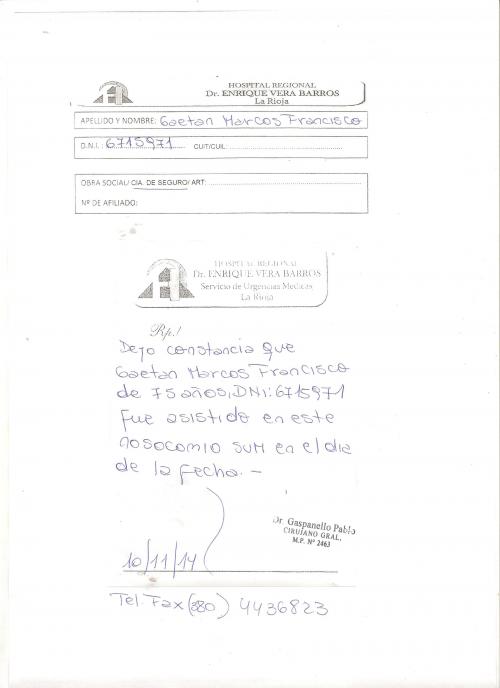 HOSPITAL REGIONAL
Dr. ENRIQUE VERA BARROS
La Rioja
APELLIDO Y NOMBRE: Gaetan Marcos Francisco
D.N.I.: 6715971 CUIT/CUIL:
OBRA SOCIAL/ CIA. DE SEGURO/ ART:
Nº DE AFILIADO:
HOSPITAL REGIONAL
Dr. ENRIQUE VERA BARROS
Servicio de Urgencias Medicas
La Rioja
Rp./
Dejo constancia que
Gaetan Marcos Francisco
de 75 años, DNI: 6715971
fue asistido en este
nosocomio SUM en el dia
de la fecha.-
Dr. Gaspanello Pablo
CIRUJANO GRAL.
M.P. Nº 2463
10/11/14
Tel. Fax (380) 4436823